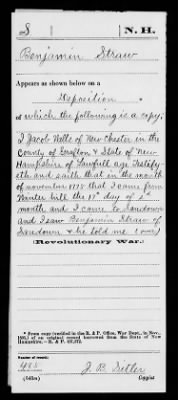 S | N. H.
Benjamin Straw
Appears as shown below on a
Deposition *
of which the following is a copy:
I Jacob Wells of New Chester in the
County of Grafton & State of New
Hampshire of Lawfull age Testify-
eth and saith that in the month
of november 1775 that I came from
Winter hill the 17th day of sd
month and I came to Sandown
and I saw Benjamin Straw of
Sandown & he told me (over)
(Revolutionary War.)
* From copy (verified in the R. & P. Office, War Dept., in Nov.,
1895,) of an original record borrowed from the State of New
Hampshire.—R. & P.
Number of record:
485
J. B. Titler
Copyist.